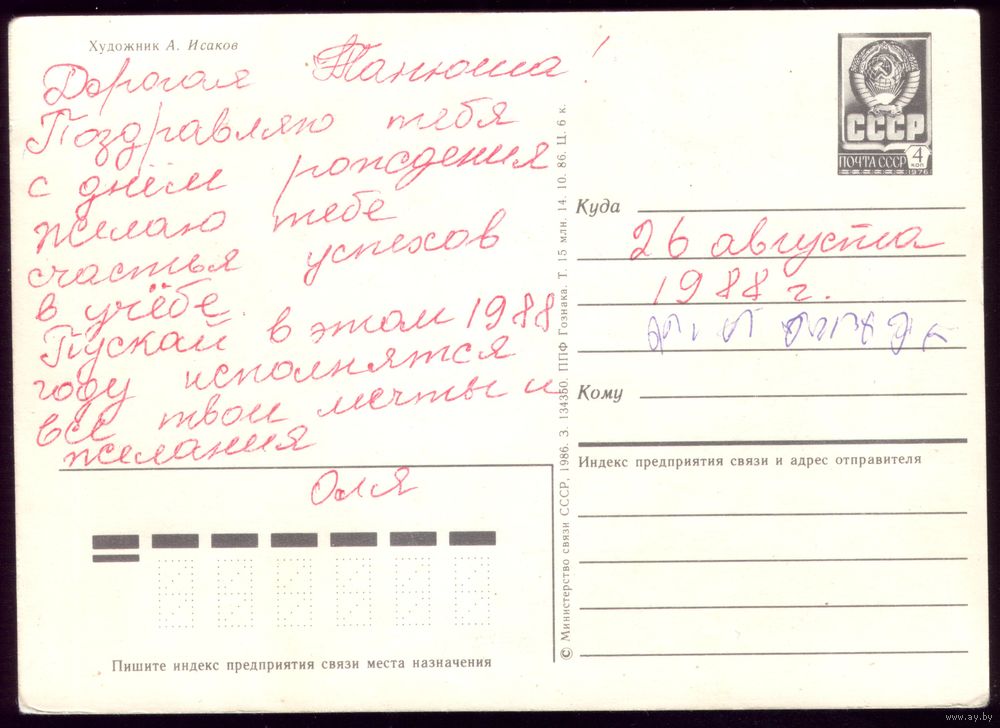 Художник А. Исаков
Дорогая Танюша!
Поздравляю тебя
с днём рождения
желаю тебе
счастья успехов
в учёбе
Пускай в этом 1988
году исполнятся
все твои мечты и
желания
Оля
Пишите индекс предприятия связи места назначения
© Министерство связи СССР, 1986. З. 134350. ППФ Гознака. Т. 15 млн. 14. 10. 86. Ц. 6 к.
СССР
ПОЧТА СССР
4
КОП
1976
Куда
26 августа
1988 г.
Кому
Индекс предприятия связи и адрес отправителя
www.ay.by